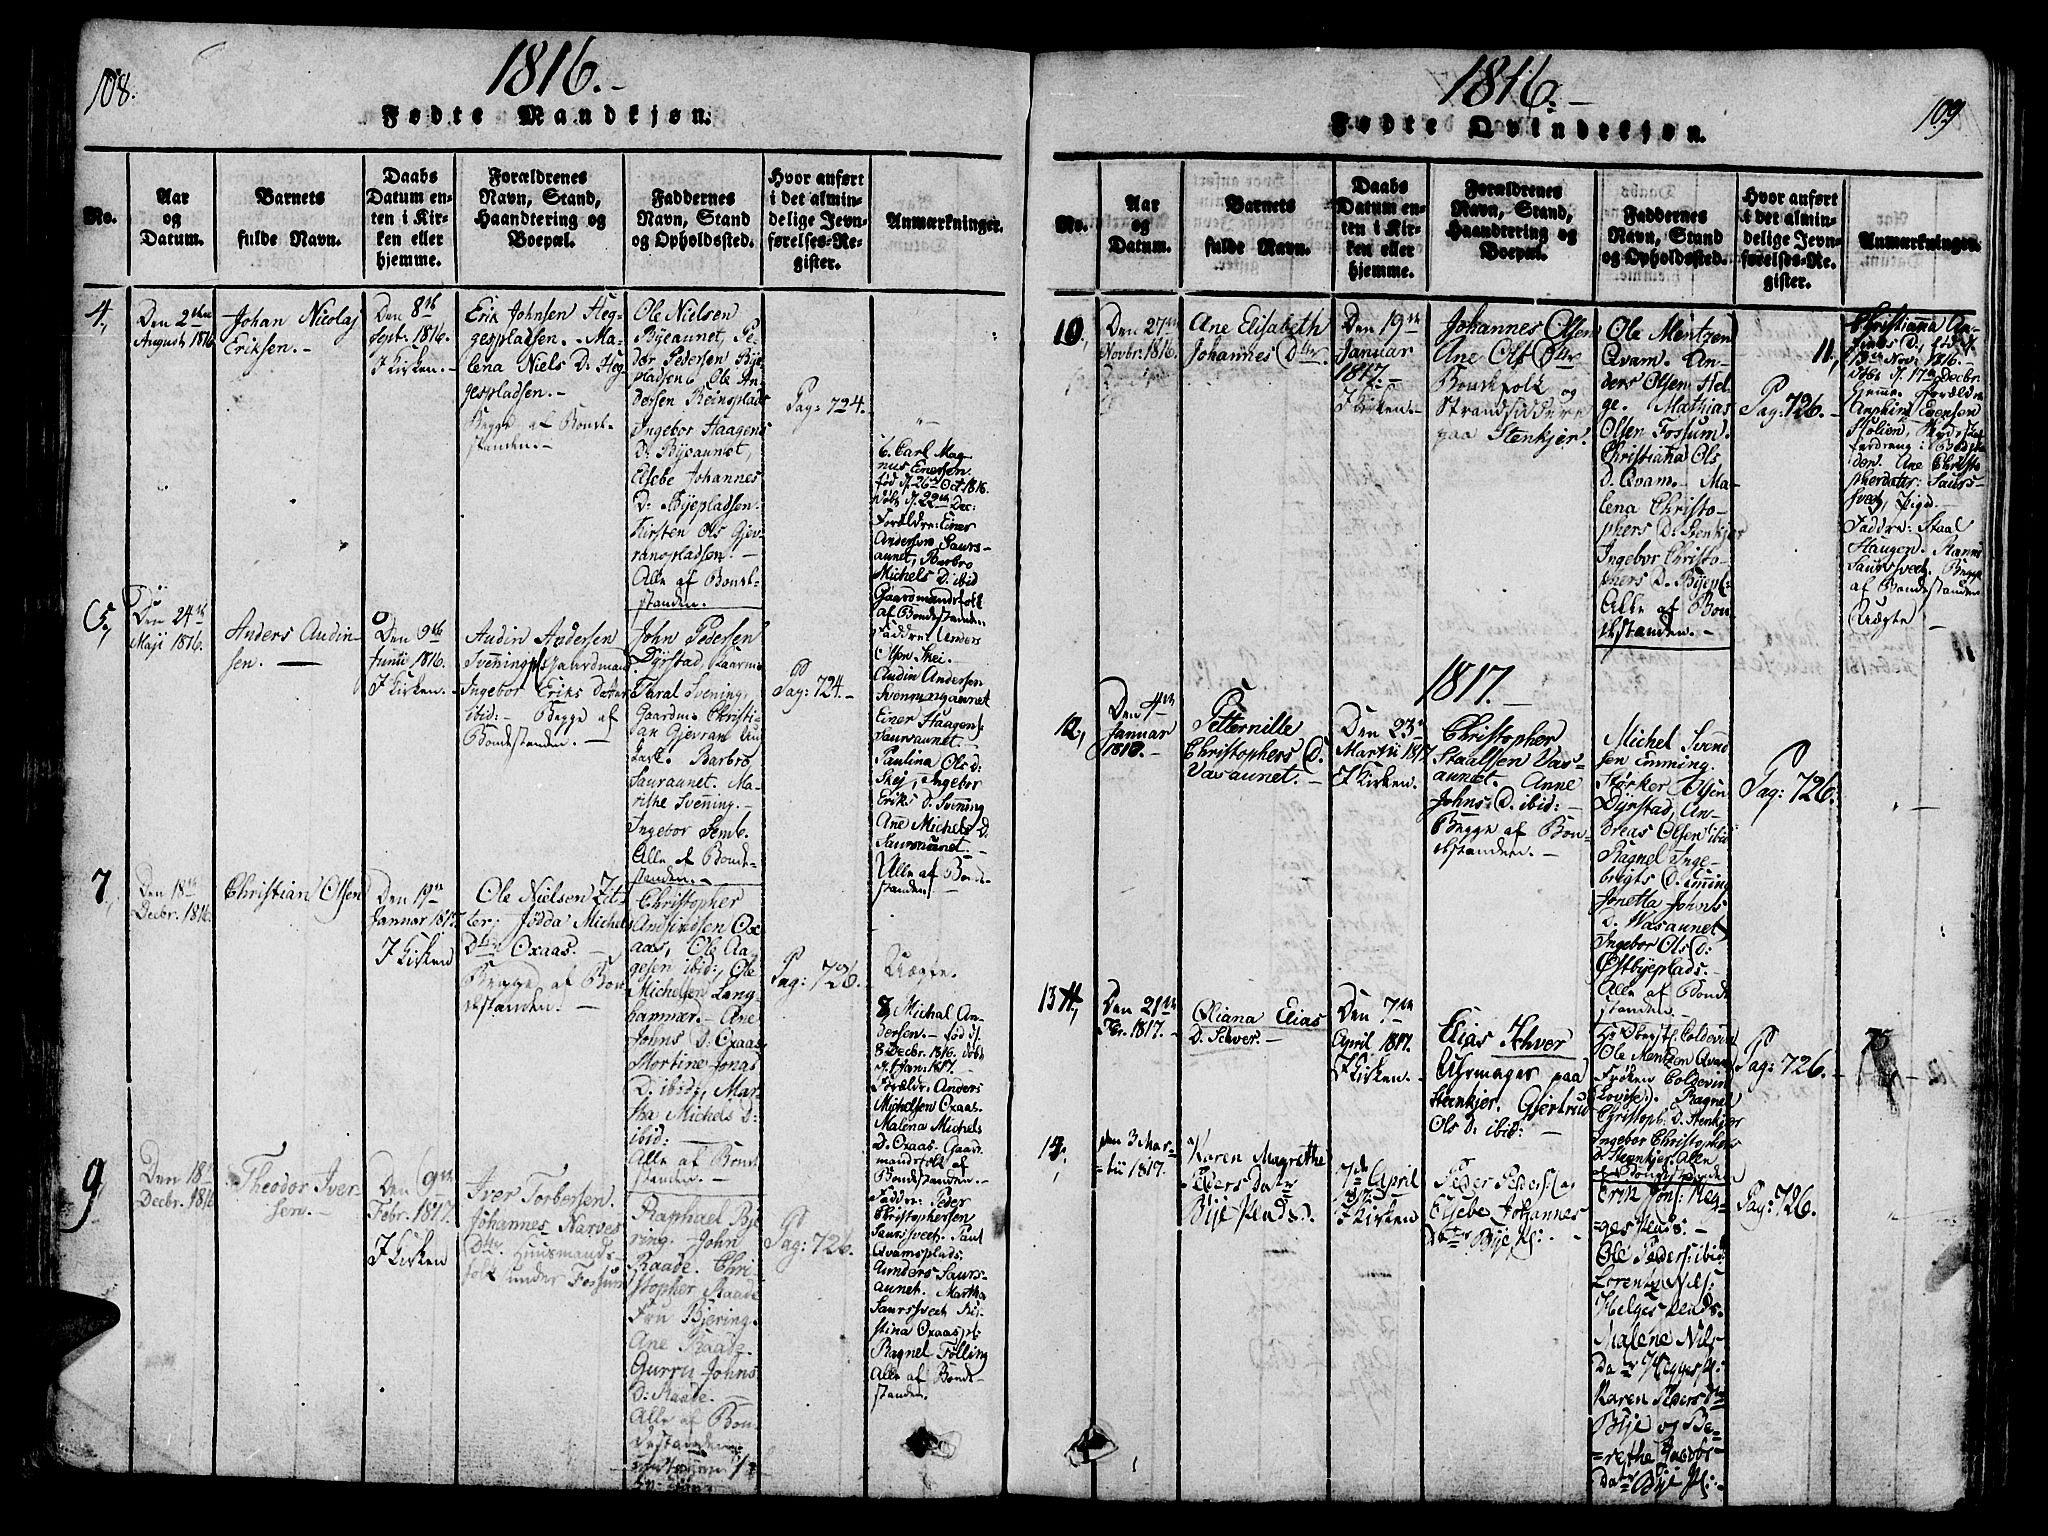 108.
1816.-
Fødte Mandkjøn.
No.
Aar
og
Datum.
Barnets
fulde Navn.
Daabs
Datum en-
ten i Kir-
ken eller
hjemme.
Forældrenes
Navn, Stand,
Haandtering og
Boepæl.
Faddernes
Navn, Stand
og Opholdssted.
Hvor anført
i det almin-
delige Jevn-
førelses-Re-
gister.
Anmærkninger.
4,
Den 2den
August 1816
Johan Nicolaj
Eriksen.-
Den 8de
Sept. 1816.
I Kirken.-
Erik Johnsen Heg-
gespladsen. Ma-
lena Niels D. Heg
gespladsen.-
Begge af Bonde-
standen.-
Ole Nielsen
Byeaunet, Pe-
der Pedersen Bye
pladsen, Ole An-
dersen Reinsplads
Ingebor Haagens
D. Byeaunet,
Alsebe Johannes
D. Byepladsen.
Kirsten Ols Gjev-
ranspladsen.-
Alle af Bonde-
standen.-
Pag: 724.-
5,
Den 24de
Maji 1816.
Anders Audin-
sen.-
Den 9de
Junii 1816.
I Kirken.-
Audin Andersen
Svenning Gaardmand
Ingebor Eriks Datter
ibid:- Begge af
Bondestanden.-
John Pedersen
Dyrstad,
Tharal Svening,
Gaardm. Christi-
an Gjevran
Barbro
Sauraunet. Ma-
rithe Svening.-
Ingebor Semb.
Alle af Bonde-
standen.-
Pag: 724.-
6. Carl Mag
nus Einersen.
fød d. 26de Oct 1816.
døbt d. 22de Dec:
Forældre: Einer
Andersen Saurs-
aunet, Barbro
Michels D. ibid
Gaardmandsfolk
af Bondestanden
Faddre: Anders
Olsen Skei.-
Audin Andersen
Svenningaunet
Einer Haagens.
Saursaunet.-
Paulina Ols D.
Skej, Ingebor
Eriks D. Svenning
Ane Michels D.
Saursaunet.-
Alle af Bonde-
standen.
7,
Den 18de
Decbr. 1816.
Christian Olsen
Den 19de
Januar 1817.
I Kirken
Ole Nielsen Zit-
ter, Jødda Michels
Dtr Oxaas.-
Begge af Bon-
destanden.-
Christopher
Andfindsen Ox
aas, Ole Aa-
gesen ibid:, Ole
Michelsen Lang-
hammer.- Ane
Johns D: Oxaas
Mortine Jonas
D. ibid, Mar-
tha Michels D:
ibid:-
Alle af Bonde-
standen.-
Pag: 726.
Uægte.
8, Michal An-
dersen.- fød d.
8 Decbr. 1816. døbt
d. 1 Jan: 1817.-
Forældr: Anders
Michelsen Oxaas.
Malena Michels
D. Oxaas. Gaard
mandsfolk af
Bondestanden.-
Faddre: Peder
Christophersen
Saurssveet.
Qvamsplads.
Anders Saurs-
aunet. Martha
Saurssveet
stina Oxaaspl:
Ragnel Følling
Alle af Bonde-
standen.
9,
Den 18
Decbr. 1816
Theodor Iver-
sen.-
Den 9de
Febr. 1817.
I Kirken
Iver Torbersen.
Johannes Narves
Dtr. Huusmands-
folk under Fossum
Raphael Bje-
ring. John
Raade. Chri-
stopher Raade
Fru Bjering.
Ane Raade.
Gurru Johns
D: Raade.-
Alle af Bon-
destanden.-
Pag: 726.
1816.-
109
Fødte Qvindekjøn.
No.
Aar
og
Datum.
Barnets
fulde Navn.
Daabs
Datum en-
ten i Kir-
ken eller
hjemme.
Forældrenes
Navn, Stand,
Haandtering og
Boepæl.
Faddernes
Navn, Stand
og Opholdssted.
Hvor anført
i det almin-
delige Jevn-
førelses-Re-
gister.
Anmærkninger.
10,
Den 27de
Novbr. 1816.
Ane Elisabeth
Johannes Dtr.
Den 19de
Januar
1817:-
I Kirken.-
Johannes Olsen
Ane Ols Dtr
Bondefolk og
Strandsiddere
paa Stenkjer.
Ole Mentzen
Qvam. An-
ders Olsen Hel-
ge. Mathias
Olsen Fossum.
Christiana Ols
D. Qvam.- Ma-
lena Christo-
phers D. Stenkjer
Ingebor Christo-
phers D. Byepl:
Alle af Bon-
destanden.-
Pag: 726.-
11,
Christianna An-
finds D., fød d.
13de Nov: 1816.-
døbt d. 17de Decbr.
hjemme. Forældre
Anphin Evensen
Folien,
Ane Christo
pherdatter: Saurs-
sveet, Pige.-
Faddre: Staal
Haugen. Ranni
Saurssveet. Begge
af Bondestanden
Uægte-
1817.-
12,
Den 4de
Januar
1817.-
Petternille
Christophers D.
Vasaunet.-
Den 23de
Martii 1817
I Kirken.
Christopher
Staalsen Vas-
aunet. Anne
Johns D. ibid:-
Begge af Bon-
destanden.-
Michel Svend
sen Emming.
Størker Olsen
Dyrstad, An-
dreas Olsen ibid
Ragnel Inge-
brigts D. Eming
Jonetta Johns
D. Wasaunet
Ingebor Ols D:
Østbyeplads.-
Alle af Bonde-
standen.-
Pag: 726.
13
Den 21de
Febr. 1817.-
Oliana Elias
D. Schver.-
Den 7de
April 1817.
I Kirken.-
Elias Schver
Uhrmager paa
Steenkjer. Gjertrud
Ols D: ibid:-
Coldevin
Ole Mentzen Qvam
Frøken Coldevin
(Lovise). Ragnel
Christoph: D. Stenkjer
Ingebor Christophers
D. Steenkjer. Alle
af Bondestanden
Pag: 726.-
14.
den 3 Mar-
tii 1817.
Karen Magrethe
Peders Datr
Bye Plads.
7de April
1817.
I Kirken
Peder Peders:
Elsebe Johannes
Datr Bye Pl:-
Erik Jons: Heg-
ges Plads:-
Ole Peders: ibid:
Lorentz Nils:
Helges Plads.
Malene Nils
Datr Hegges Pl:
Karen Peders Dtr
Bye og Be-
rethe Jacobs
Datr Bye Pl:
Pag: 726.